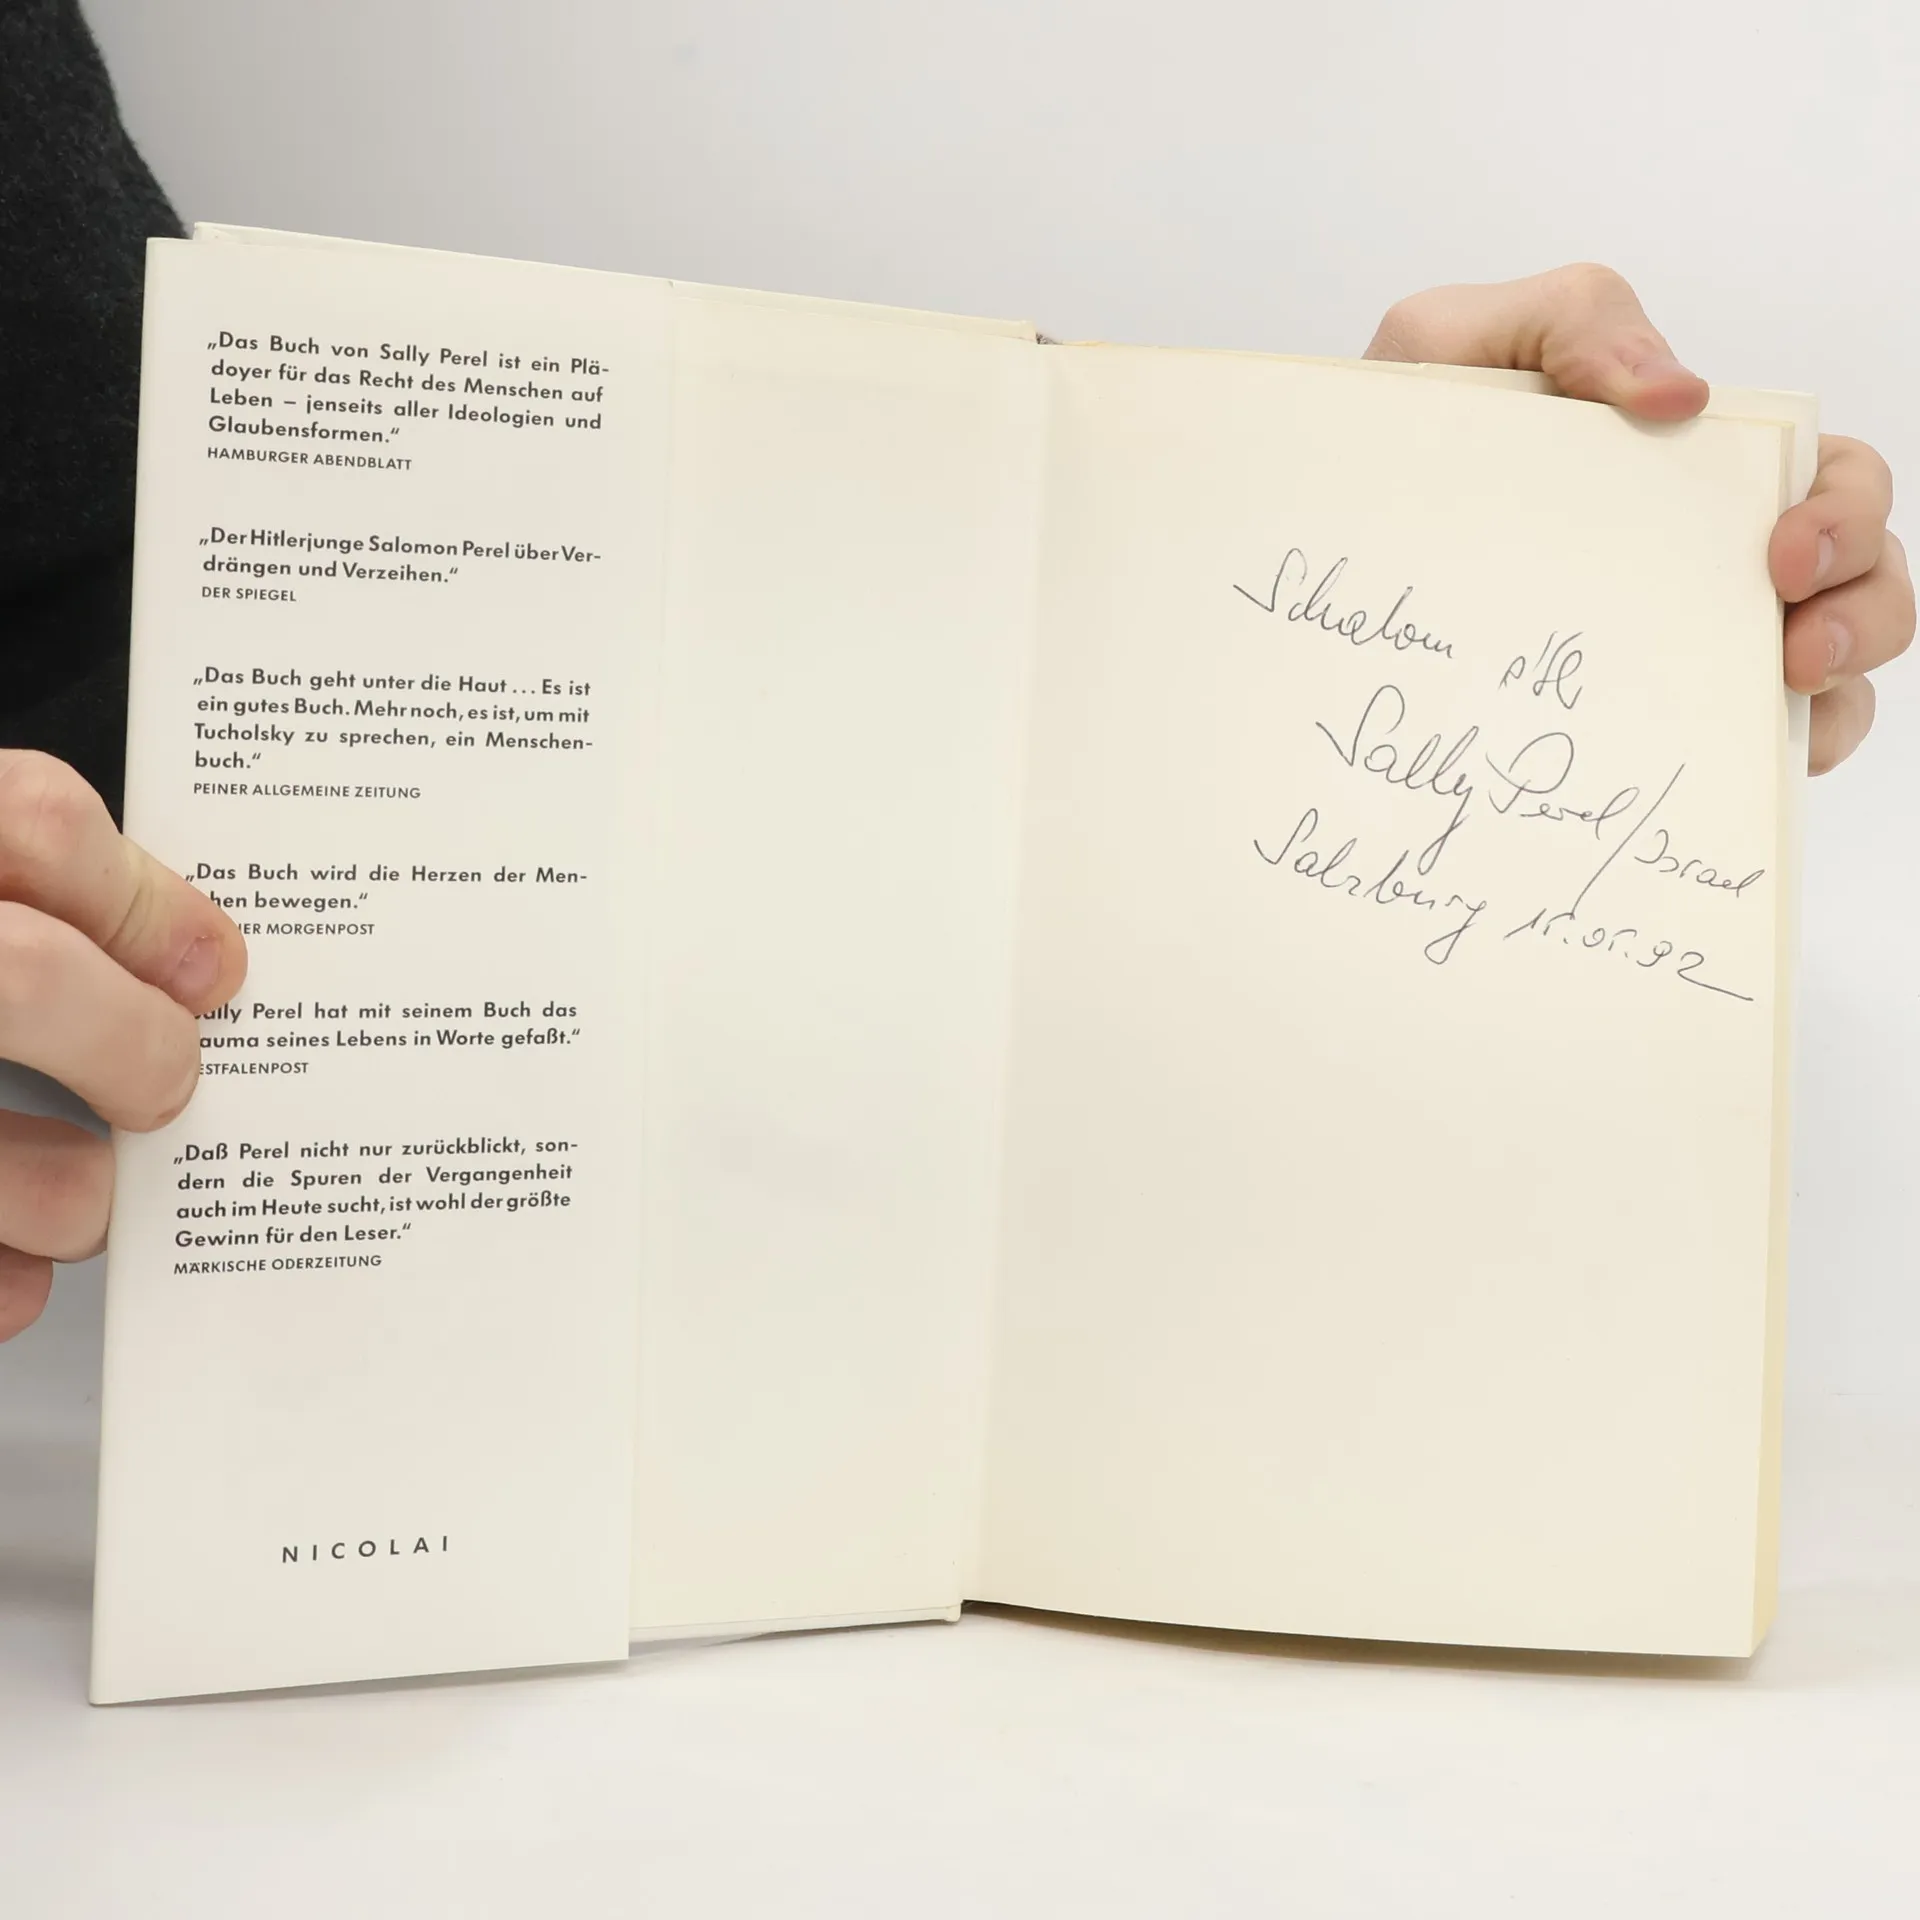 „Das Buch von Sally Perel ist ein Plä-
doyer für das Recht des Menschen auf
Leben – jenseits aller Ideologien und
Glaubensformen.“
HAMBURGER ABENDBLATT
„Der Hitlerjunge Salomon Perel über Ver-
drängen und Verzeihen.“
DER SPIEGEL
„Das Buch geht unter die Haut ... Es ist
ein gutes Buch. Mehr noch, es ist, um mit
Tucholsky zu sprechen, ein Menschen-
buch.“
PEINER ALLGEMEINE ZEITUNG
„Das Buch wird die Herzen der Men-
hen bewegen.“
ER MORGENPOST
ally Perel hat mit seinem Buch das
auma seines Lebens in Worte gefaßt.“
ESTFALENPOST
„Daß Perel nicht nur zurückblickt, son-
dern die Spuren der Vergangenheit
auch im Heute sucht, ist wohl der größte
Gewinn für den Leser.“
MÄRKISCHE ODERZEITUNG
NICOLAI
Schalom
Sally Perel/Israel
Salzburg 15.05.92